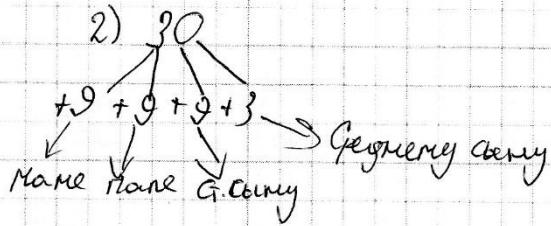 2) 30
+9 +9 +9 +3
Среднему сыну
маме папе Ст. сыну